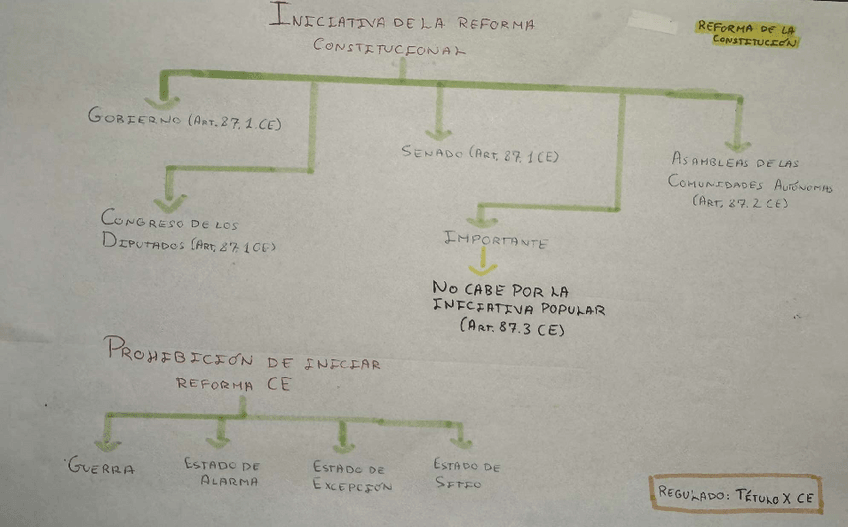 INICIATIVA DE LA REFORMA
CONSTITUCIONAL
REFORMA DE LA
CONSTITUCIÓN
GOBIERNO (ART. 87.1 CE)
SENADO (ART. 87.1 CE)
ASAMBLEAS DE LAS
COMUNIDADES AUTÓNOMAS
(ART. 87.2 CE)
CONGRESO DE LOS
DIPUTADOS (ART. 87.1 CE)
IMPORTANTE
NO CABE POR LA
INICIATIVA POPULAR
(ART. 87.3 CE)
PROHIBICIÓN DE INICIAR
REFORMA CE
GUERRA
ESTADO DE
ALARMA
ESTADO DE
EXCEPCIÓN
ESTADO DE
SITIO
REGULADO: TÍTULO X CE